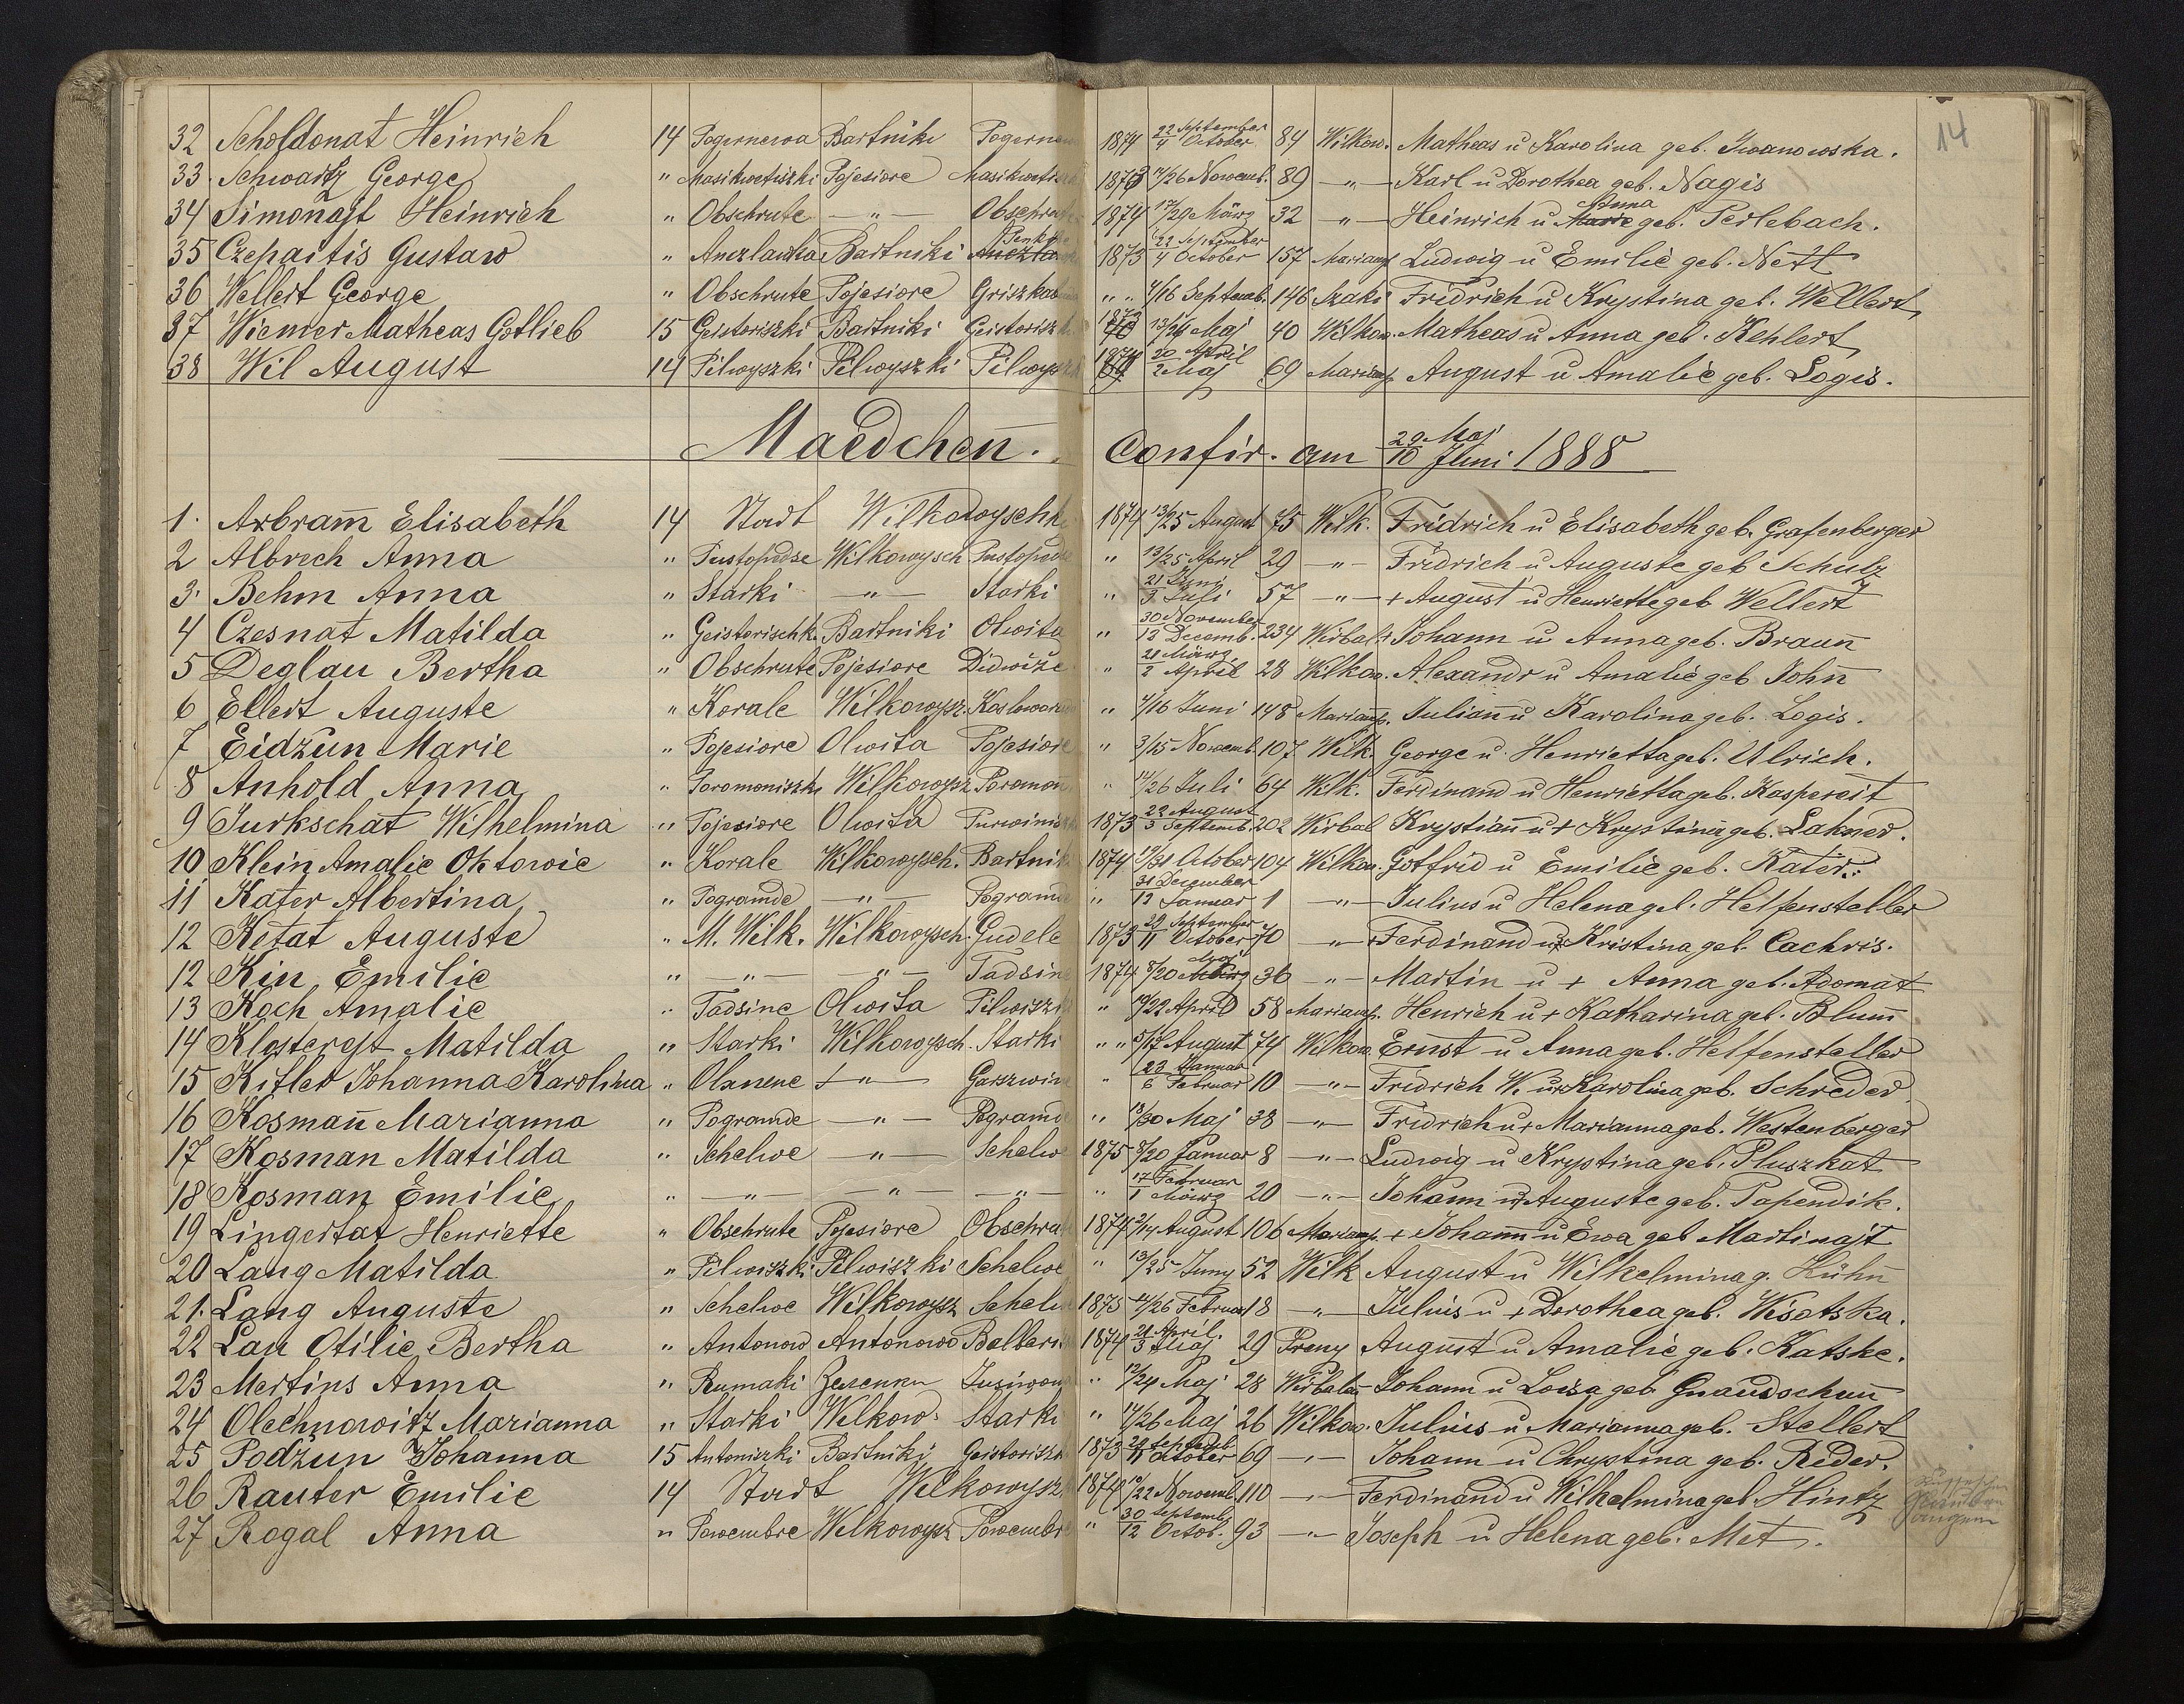 14
32 Scholdonat Heinrich 14 Pogernewa Bartniki 1874 22 September/4 October 84 Wilkow. Matheas u Karolina geb. Iwanowska.
33 Schwartz George " Masikwetiszki Pojesiore 1873 14/26 Novemb. 89 —"— Karl u Dorothea geb. Nagis
34 Simonajt Heinrich " Obschrute —"— Obschrute 1874 17/29 März 32 —"— Heinrich u Marie Anna geb. Perlebach.
35 Czepaitis Gustaw " Bartniki 1873 22 September/4 October 157 Mariamp. Ludwig u Emilie geb. Nett
36 Wellert George " Obschrute Pojesiore " " 4/16 Septemb. 146 Szaki Fridrich u Krystina geb. Wellert
37 Wiemer Matheas Gotlieb 15 Geistoriszki Bartniki Geistoriszki 1873 40 Wilkow. Matheas u Anna geb. Kehlert
38 Wil August 14 Pilwyszki Pilwyszki Pilwyszki 1874 20 April/2 Maj 69 Mariamp. August u Amalie geb. Logis.
Maedchen. Confir. am 29 Maj/10 Juni 1888
1. Arbram̄ Elisabeth 14 Stadt Wilkowyschki 1874 13/25 August 75 Wilk. Fridrich u Elisabeth geb. Grafenberger
2 Albrech Anna " Pustopedse Wilkowysch Pustopedse " 13/25 April 29 —"— Fridrich u Auguste geb Schulz
3. Behm Anna " Starki —"— Starki " 21 Juni/3 Juli 57 —"— + August u Henriette geb Wellert
4 Czesnat Matilda " Geistorischk. Bartniki Olwita " 30 November/12 Decemb. 234 Wirbal. Johann u Anna geb. Braun̄
5 Deglau Bertha " Obschrute Pojesiore Didwiże " 21 März/2 April 28 Wilkow. Alexandr u Amalie geb John̄
6 Ellert Auguste " Korale Wilkowysz. " 4/16 Juni 148 Mariamp. Julian̄ u Karolina geb. Logis.
7 Eidżun Marie " Pojesiore Olwita Pojesiore " 3/15 Novemb. 107 Wilk. George u Henrietta geb. Ulrich.
8 Anhold Anna " Poromoniszki Wilkowysz. " 14/26 Juli 64 Wilk. Ferdinand u Henrietta geb. Kaspereit
9 Jurkschat Wilhelmina " Pojesiore Olwita 1873 22 August/3 Septemb. 202 Wirbal Krystian̄ u + Krystine geb. Lakner.
10 Klein Amalie Oktowie " Korale Wilkowysch. Bartniki 1874 19/31 October 104 Wilkow. Gotfrid u Emilie geb. Kater.
11 Kater Albertina " Pogramde —"— Pogramde " 31 December/12 Januar 1 —"— Julius u Helena geb. Helfensteller
12 Ketat Auguste " M. Wilk. Wilkowysch. Gudele 1873 29 September/11 October 70 —"— + Ferdinand u + Kristina geb. Cachris.
12 Kin Emilie " —"— —"— Tadsine 1874 8/20 März Maj 36 —"— Martin u + Anna geb. Adomat
13 Koch Amalie " Tadsine Olwita Pilwiszki " 10/22 April 58 Mariamp. Henrich u + Katharina geb. Blum̄
14 Klosterejt Matilda " Starki Wilkowysch. Starki " " August 74 Wilkow. Ernst u Anna geb. Helfensteller
15 Kitler Johanna Karolina " Olanene —"— " 25 Januar/6 Februar 10 —"— Fridrich W. u + Karolina geb. Schreder.
16 Kosman̄ Marianna " Pogramde —"— Pogramde " 18/30 Maj 38 —"— Fridrich u + Marianna geb. Westenberger
17 Kosman Matilda " Schelwe —"— Schelwe 1875 8/20 Januar 8 —"— Ludwig u Krystina geb. Pluszkat
18 Kosman Emilie " —"— —"— —"— " 17 Februar/1 März 20 —"— Johann u Auguste geb. Papendik.
19 Lingertat Henriette " Obschrute Pojesiore Obschrute 1874 2/14 August 106 Mariamp. + Johann u Ewa geb Martinajt
20 Lang Matilda " Pilwiszki Pilwiszki Schelwe " 13/25 Juny 52 Wilk August u Wilhelmina g. Kühn̄
21. Lang Auguste " Schelwe Wilkowysz Schelwe 1875 14/26 Februar 18 —"— Julius u + Dorothea geb. Wisotska.
22 Lau Otilie Bertha " Antonow Antonowo 1874 21 April/3 Maj 29 Preny August u Amalie geb. Katske.
23 Mertins Anna " Rumaki Зеленки " 12/24 Maj 28 Wirbalen Johann u Loisa geb Gnaudschun
24 Olechnowitz Marianna " Starki Wilkow. Starki " 14/26 Maj 26 Wilkow. Julius u Marianna geb. Stellert
25 Podżun Johanna 15 Antoniszki Bartniki Geistoriszki 1873 29 Septemb./11 October 69 —"— Johann u Chrystina geb. Reder.
26 Rauter Emilie 14 Stadt Wilkowysz 1874 10/22 Novemb. 110 —"— Ferdinand u Wilhelmina geb. Hintz
27 Rogal Anna " Powembre Wilkowysz Powembre " 30 Septemb/12 Octob. 93 —"— Joseph u Helena geb. Met.